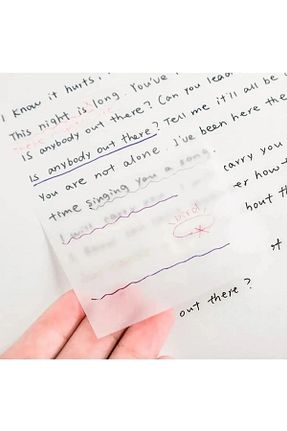 I know it hurts,
This night is long. You've
Is anybody out there? Can you lead
Is anybody out there? Tell me it'll all be
You are not alone. I've been here the
time singing you a song.
I will carry carry you
er how
bird
hout th
of
out there?